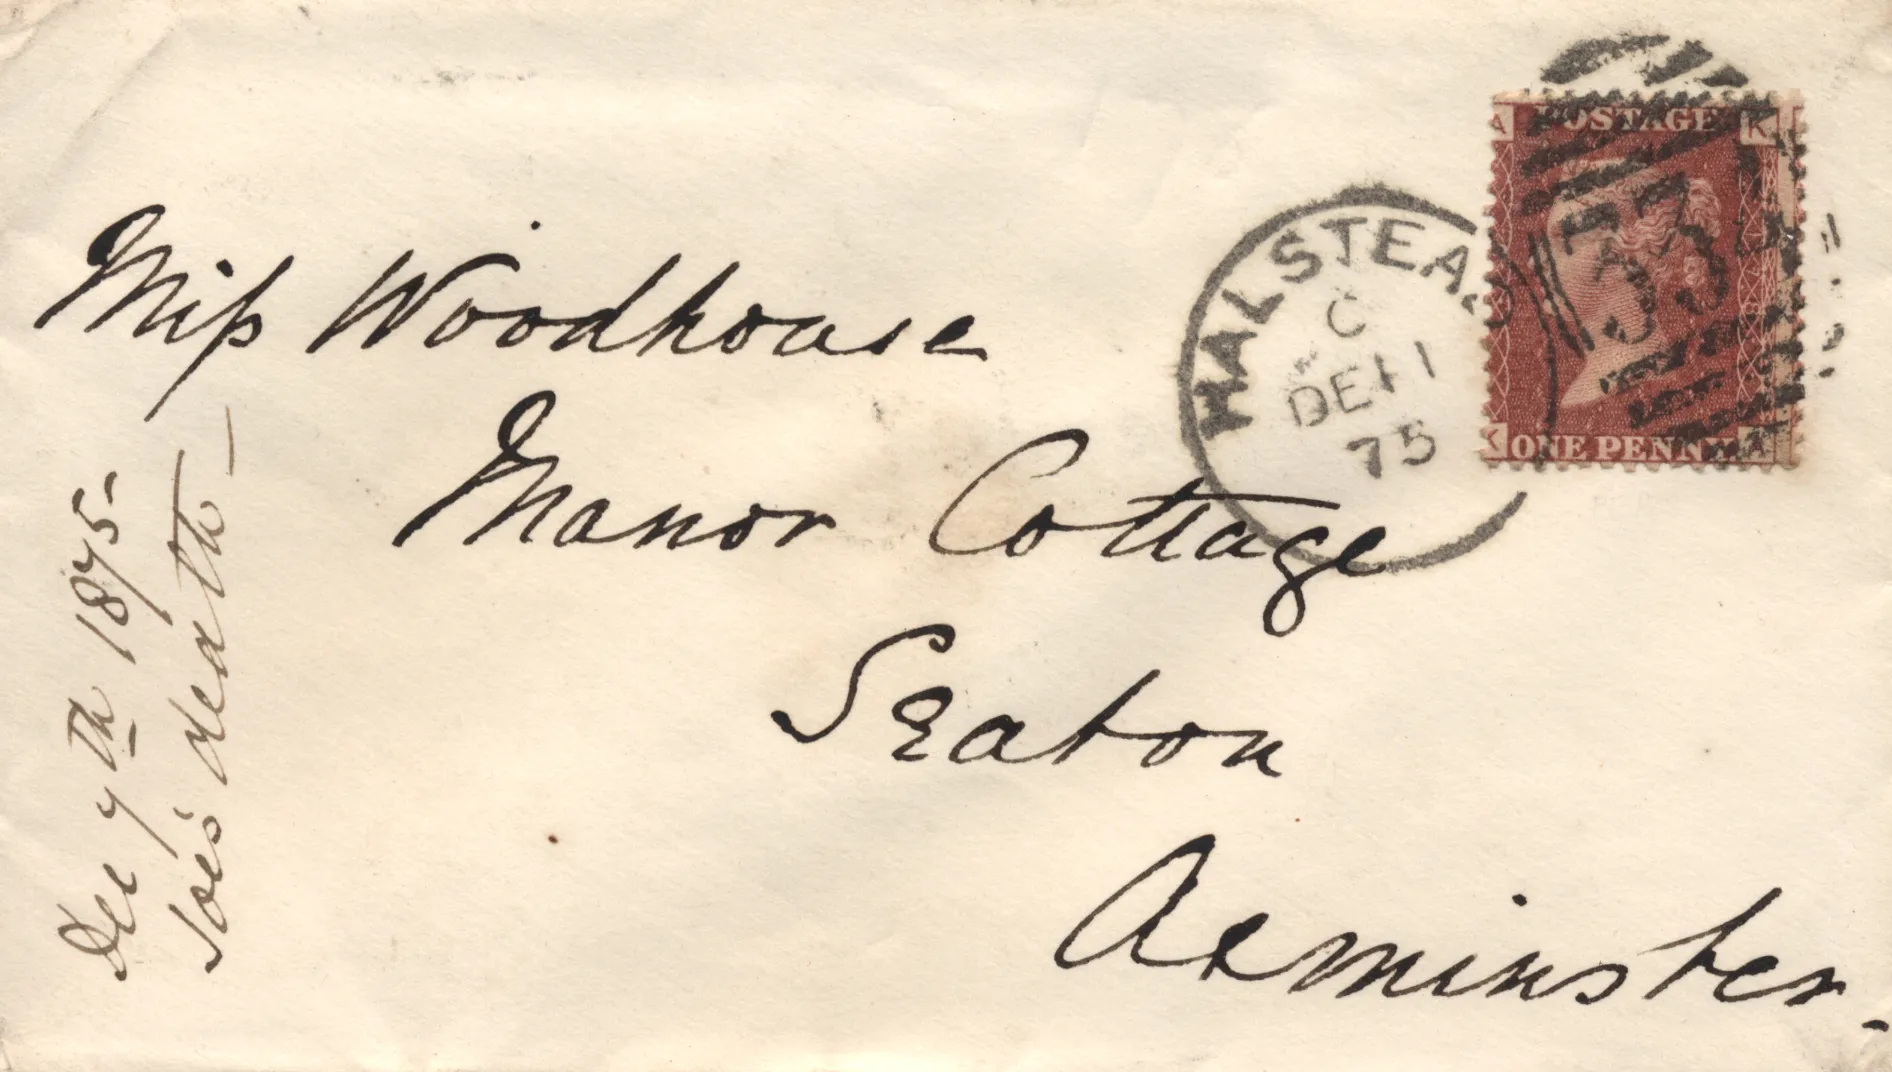 Miss Woodhouse
Manor Cottage
Seaton
Axminster.
Dec 7th 1875-
Joe's death -
HALSTEAD
C
DE 11
75
A POSTAGE K
K ONE PENNY A